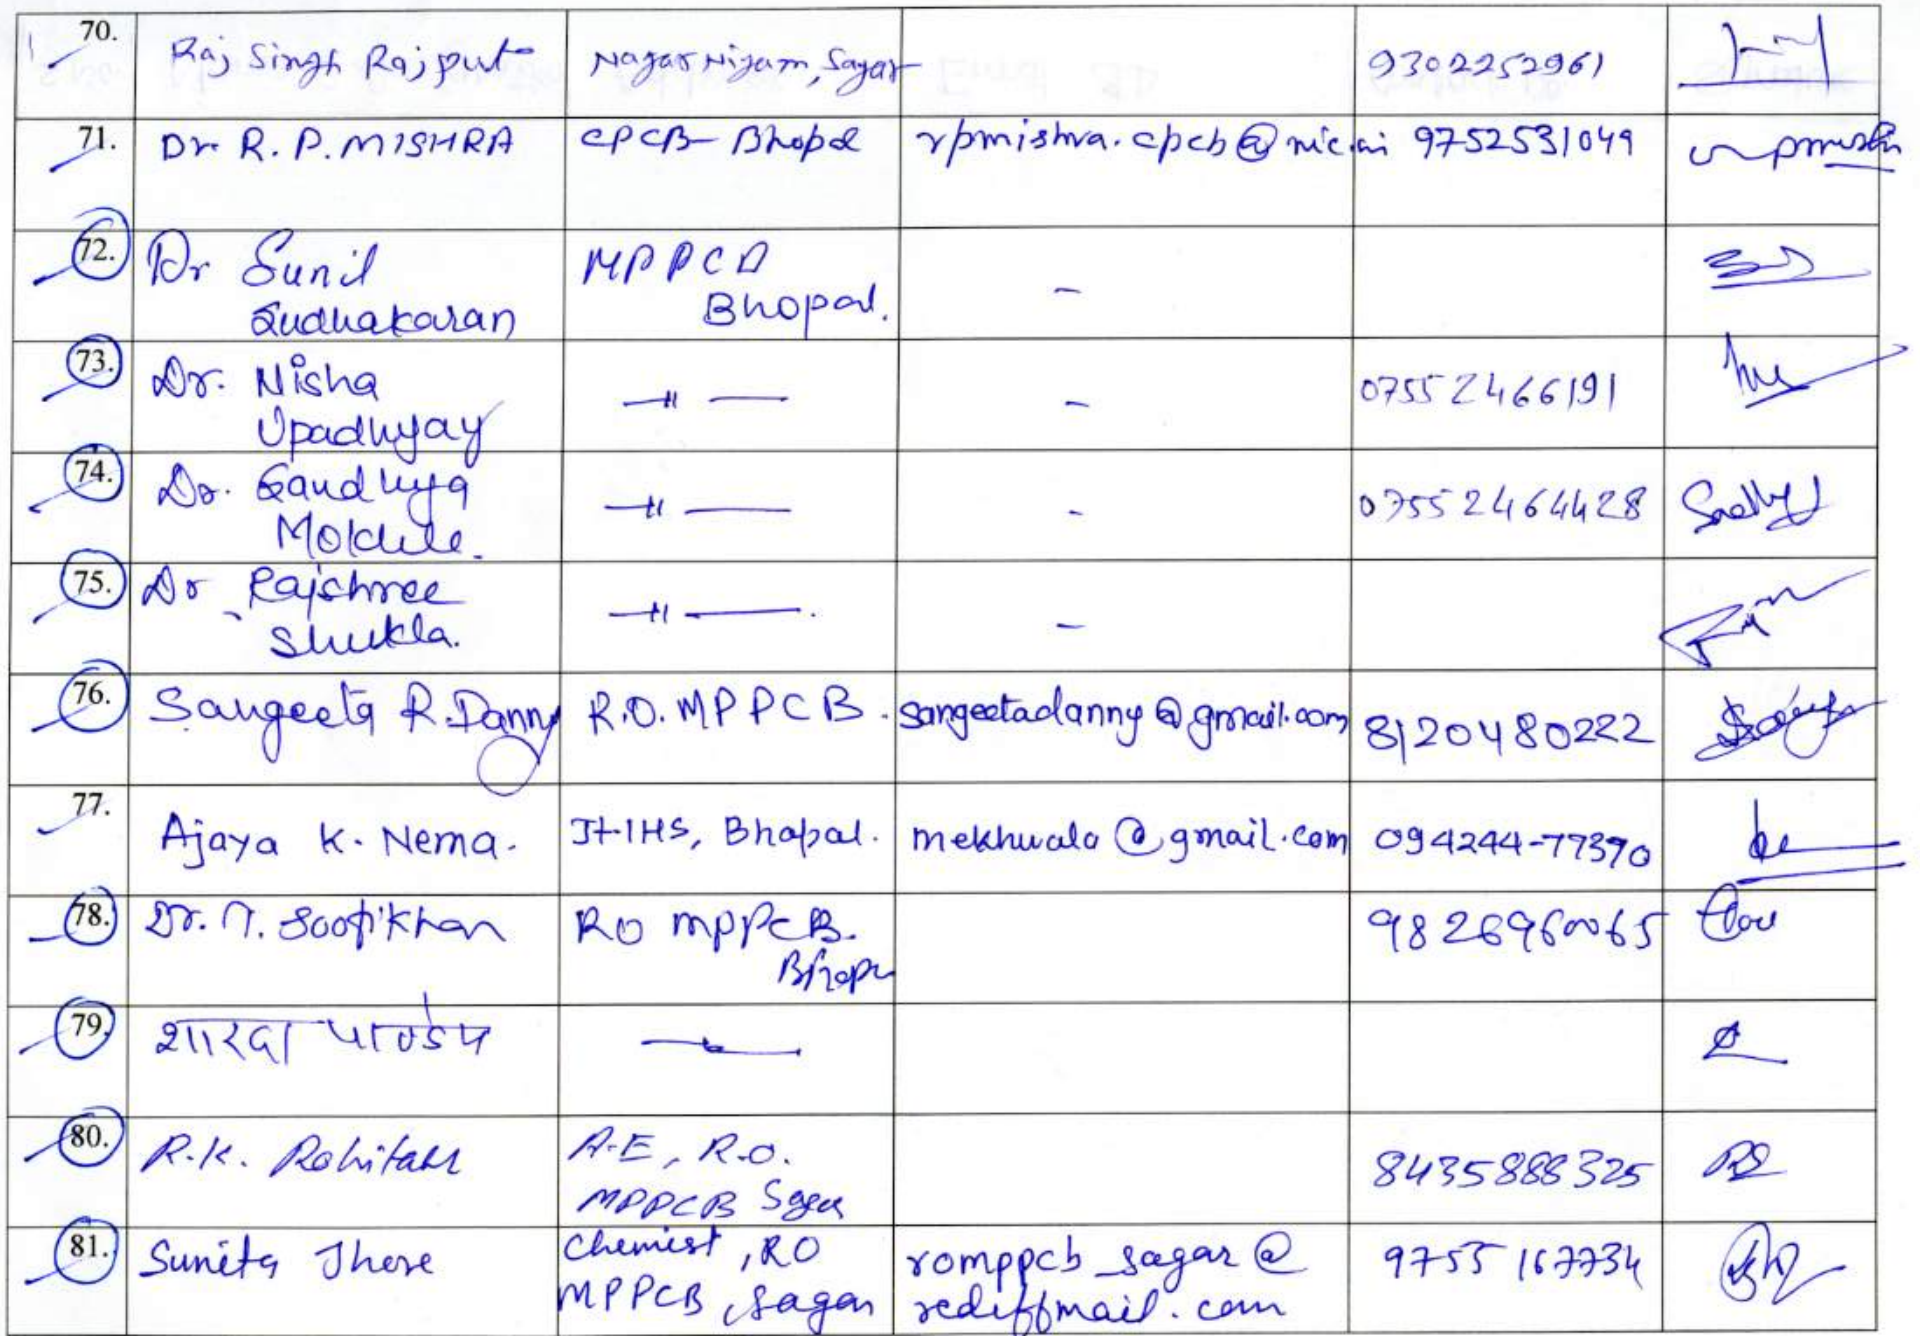 70. Raj Singh Rajput Nagar Nigam, Sagar 9302252961
71. Dr. R. P. MISHRA CPCB- Bhopal rpmishra.cpcb@nic.in 9752531049
72. Dr Sunil MPPCB
Sudhakaran Bhopal. -
73. Dr. Nisha
Upadhyay —〃— - 07552466191
74. Dr. Sandhya
Mokhle. —〃— - 07552464428
75. Dr Rajshree
Shukla. —〃—. -
76. Sangeeta R. Danny R.O. MPPCB. sangeetadanny@gmail.com 8120480222
77. Ajaya K. Nema. Bhopal. mekhwala@gmail.com 094244-77390
78. Dr. Soofikhan RO MPPCB. 9826960065
79. शारदा पाण्डेय
80. R.K. A.E, R.O. 8435888325
MPPCB Sagar
81. Sunita Jhore Chemist, RO romppcb_sagar@ 9755167734
MPPCB, Sagar rediffmail.com